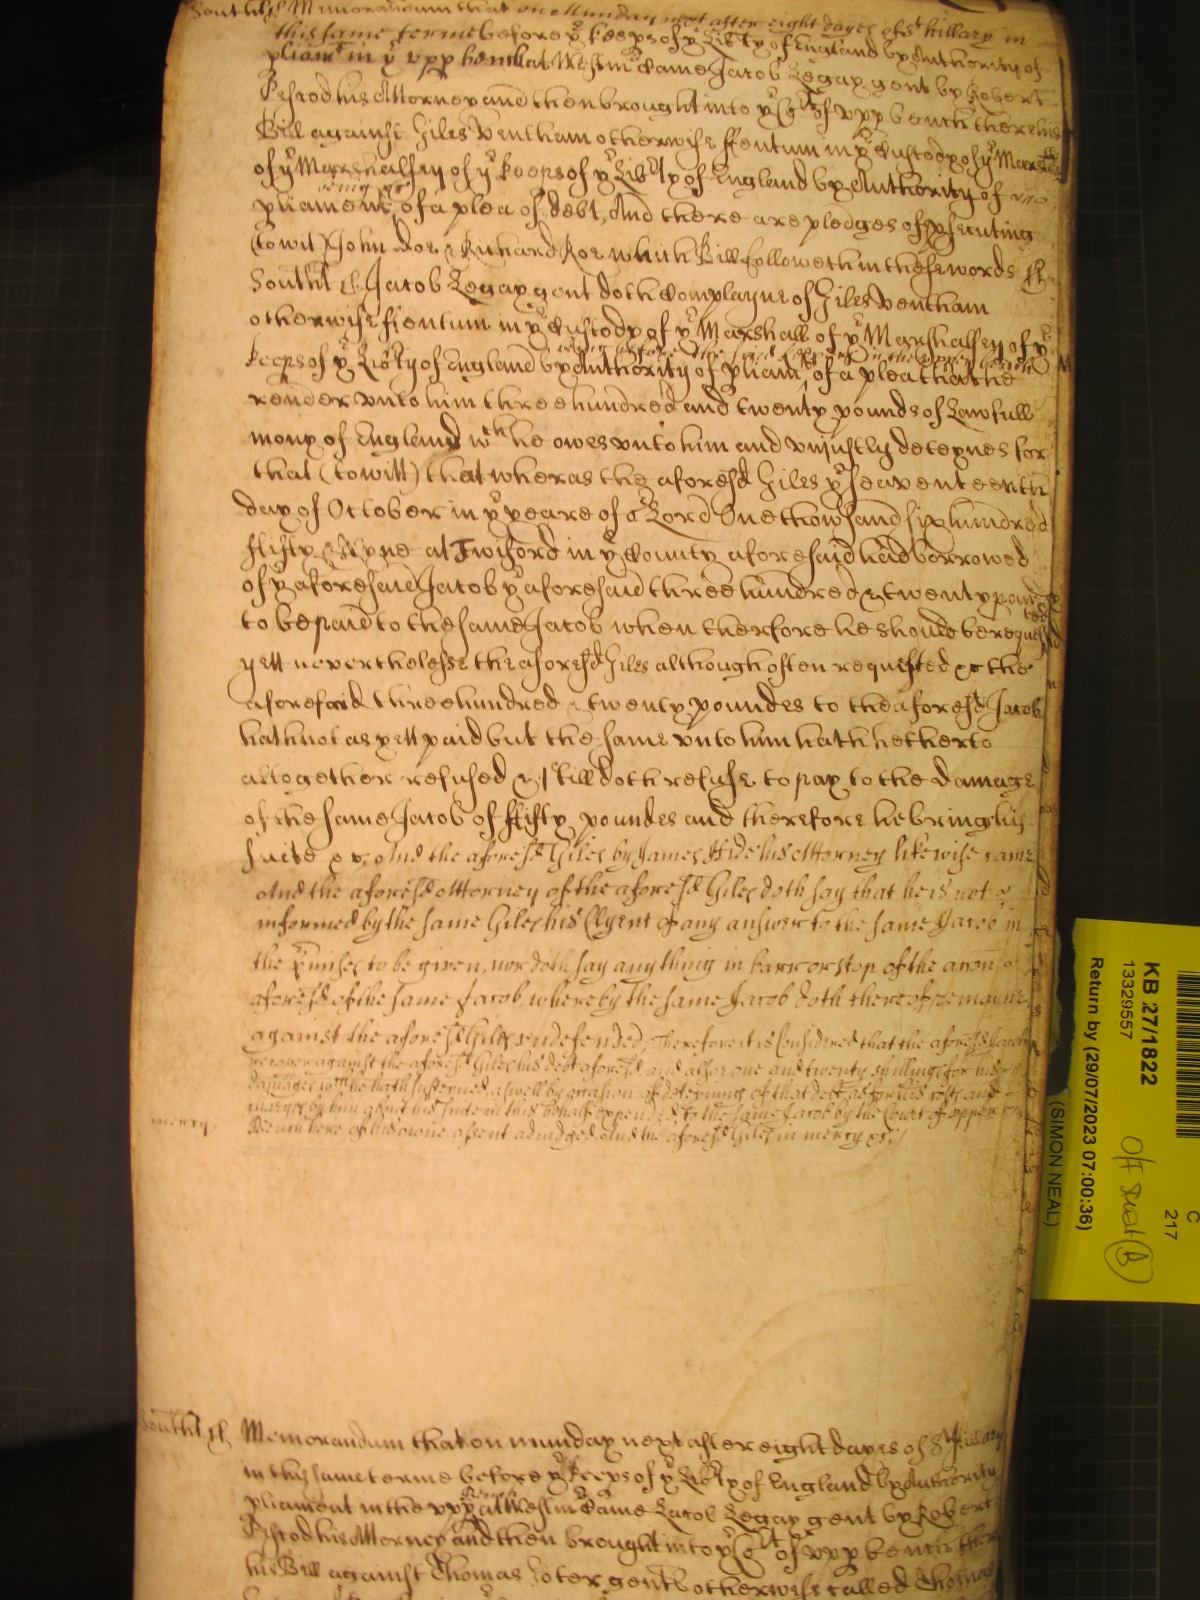 South ss Memorandum that on Munday next after eight dayes of St hillary in
this same terme before ye keeps of ye Libty of England by Authority of
pliamt in ye upp bench at Westmr Came Jacob Legay gent by Robert
Pestod his Attorney and then brought into ye Cort of upp bench there his
Bill against Giles Ventham otherwise ffentum in ye Custody of ye Marshall
of ye Marshalsey of ye keeps of ye Libty of England by Authority of
pliament of a plea of debt, And there are pledges of psecuting
(to wit) John Doe & Richard Roe which Bill followeth in these words ss
South ss Jacob Legay gent doth Complayne of Giles Ventham
otherwise ffentum in ye Custody of ye Marshall of ye Marshalsey of ye
keeps of ye Libty of England by Authority of pliamt of a plea that he
render unto him three hundred and twenty pounds of Lawfull
mony of England wch he owes unto him and unjustly deteynes for
that (to witt) that wheras the aforesd Giles ye seaventeenth
day of October in ye yeare of or Lord One thowsand six hundred
ffifty & Nyne at Twiford in ye County aforesaid had borrowed
of ye aforesaid Jacob ye aforesaid three hundred & twenty pounds
to be paid to the same Jacob when therfore he should be requested
yett neverthelesse the aforesd Giles although often requested &c the
aforesaid three hundred & twenty poundes to the aforesd Jacob
hath not as yett paid but the same unto him hath hetherto
altogether refused & still doth refuse to pay to the damage
of the same Jacob of ffifty poundes and therefore he bringhis
suite &c And the aforesd Giles by James Hide his Attorney likewise came
And the aforesd Attorney of the aforesd Giles doth say that he is not
informed by the same Giles his Clyent of any answer to the same Jacob in
the pmises to be given, nor doth say any thing in barr or stop of the accon
aforesd of the same Jacob whereby the same Jacob doth thereof remaine
against the aforesd Giles undefended, Therefore it is Considered that the aforesd Jacob
recover against the aforesd Giles his debt aforesd and also one and twenty shillings for his
damages wch he hath susteined aswell by occasion of deteining of that debt as for his costs and
charges by him about his suite in this behalf expended to the same Jacob by the Court of upper
Bench here of his owne assent adjudged And the aforesd Giles in mercy &c
mercy
South ss Memorandum that on munday next after eight dayes of St Hillary
in this same terme before ye keeps of ye Libty of England by Authority
pliament in the upp bench at Westmr Came Jacob Legay gent by Robert
Pestod his Attorney and then brought into ye Cort of upp bench there
his Bill against Thomas gent otherwise called Thomas
KB 27/1822
13329557
Return by (29/07/2023 07:00:36)
(SIMON NEAL)
C
217